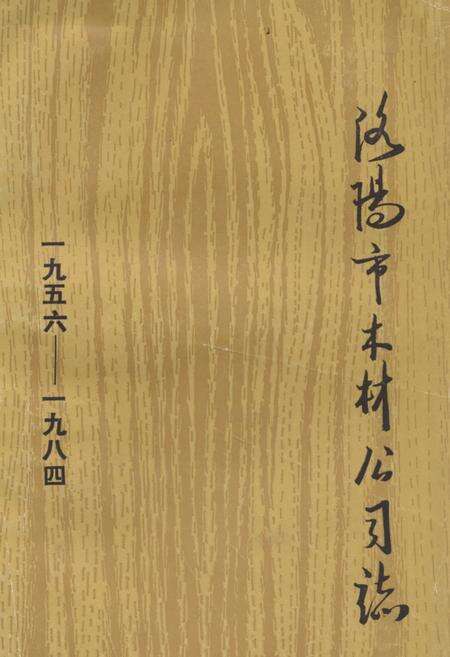 洛阳市木材公司誌
一九五六——一九八四